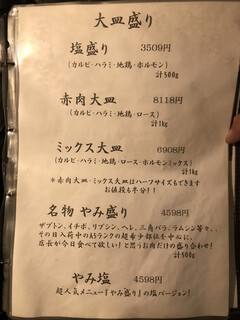 大皿盛り
塩盛り 3509円
(カルビ・ハラミ・地鶏・ホルモン)
計500g
赤肉大皿 8118円
(カルビ・ハラミ・地鶏・ロース)
計1kg
ミックス大皿 6908円
(カルビ・ハラミ・地鶏・ロース・ホルモンミックス)
計1kg
*赤肉大皿・ミックス大皿はハーフサイズもできます
お値段も半分!!
名物 やみ盛り 4598円
ザブトン、イチボ、リブシン、ヘレ、三角バラ、ラムシン等々、、
その日入荷中のA5ランクの超希少部位を中心に、
店長が今日食べて欲しい!と思うお肉だけの盛り合わせ!
計500g
やみ塩 4598円
超人気メニュー『やみ盛り』の塩バージョン!